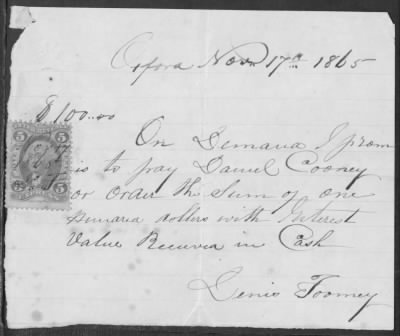 Oxford Nov 17th 1865
$100.00
On Demand I prom
is to pay Daniel Cooney
or order the Sum of one
Hundred dollars with Interest
Value Received in Cash
Denis Toomey
5 5
5 5